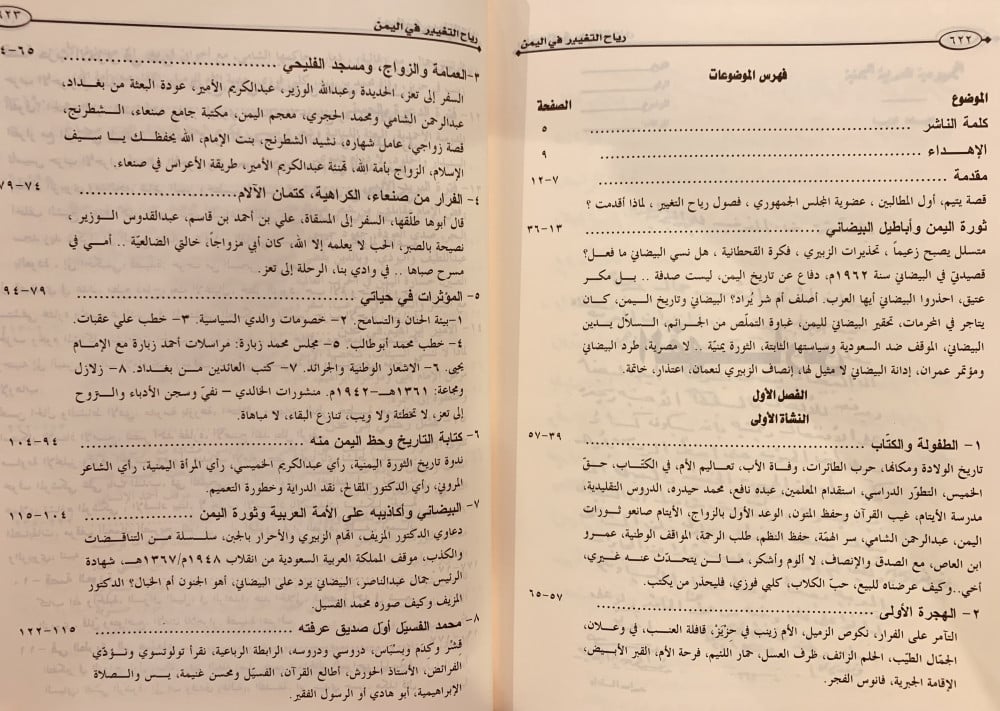 ٦٢٢
رياح التغيير في اليمن
فهرس الموضوعات
الموضوع
الصفحة
كلمة الناشر ........ ٥
الإهــداء ........ ٩
مقدمة ........ ٧-١٢
قصة يتيم، أول المطالبين، عضوية المجلس الجمهوري، فصول رياح التغيير، لماذا أقدمت ؟
ثورة اليمن وأباطيل البيضاني ........ ١٣-٣٦
متسلل يصبح زعيماً، تحذيرات الزبيري، فكرة القحطانية، هل نسي البيضاني ما فعل؟
قصيدتي في البيضاني سنة ١٩٦٢م، دفاع عن تاريخ اليمن، ليست صدفة .. بل مكر
عتيق، احذروا البيضاني أيها العرب. أصلف أم شر يُراد؟ البيضاني وتاريخ اليمن، كان
يتاجر في المحرمات، تحقير البيضاني لليمن، غباوة التملّص من الجرائم، السلاّل يدين
البيضاني، الموقف ضد السعودية وسياستها الثابتة، الثورة يمنيّة .. لا مصرية، طرد البيضاني
ومؤتمر عمران، إدانة البيضاني لا مثيل لها، إنصاف الزبيري لنعمان، اعتذار، خاتمة.
الفصل الأول
النشاة الأولى
١- الطفولة والكتّاب ........ ٣٩-٥٧
تاريخ الولادة ومكانها، حرب الطائرات، وفاة الأب، تعاليم الأم، في الكتّاب، حقّ
الخميس، التطوّر الدراسي، استقدام المعلمين، عبده نافع، محمد حيدره، الدروس التقليدية،
مدرسة الأيتام، غيب القرآن وحفظ المتون، الوعد الأول بالزواج، الأيتام صانعو ثورات
اليمن، عبدالرحمن الشامي، سر الهمّة، حفظ النظم، طلب الرحمة، المواقف الوطنية، عمرو
ابن العاص، مع الصدق والإنصاف، لا ألوم وأشكر، ما لن يتحدّث عنه غيري،
أخي..وكيف عرضناه للبيع، حبّ الكلاب، كلبي فوزي، فليحذر من يكتب.
٢- الهجرة الأولى ........ ٥٧-٦٥
التآمر على الفرار، نكوص الزميل، الأم زينب في حزْيَز، قافلة العنب، في وعلان،
الجمّال الطيّب، الحلم الزائف، ظرف العسل، حمار اللئيم، فرحة الأم، القبر الأبيض،
الإقامة الجبرية، فانوس الفجر.
رياح التغيير في اليمن
٣-العمامة والزواج، ومسجد الفليحي ........
السفر إلى تعز، الحديدة وعبدالله الوزير، عبدالكريم الأمير، عودة البعثة من بغداد،
عبدالرحمن الشامي ومحمد الحجري، معجم اليمن، مكتبة جامع صنعاء، الشطرنج،
قصة زواجي، عامل شهاره، نشيد الشطرنج، بنت الإمام، الله يحفظك يا سيف
الإسلام، الزواج بأمة الله، تهنئة عبدالكريم الأمير، طريقة الأعراس في صنعاء.
٤- الفرار من صنعاء، الكراهية، كتمان الآلام ........
قال أبوها طلّقها، السفر إلى المسقاة، علي بن أحمد بن قاسم، عبدالقدوس الوزير ،
نصيحة بالصبر، الحب لا يعلمه إلا الله، كان أبي مزواجاً، خالتي الضالعيّة .. أمي في
مسرح صباها .. في وادي بنا، الرحلة إلى تعز.
٥- المؤثرات في حياتي ........ ٧٩-٩٤
١-بيئة الحنان والتسامح. ٢- خصومات والدي السياسية. ٣- خطب علي عقبات.
٤- خطب محمد أبوطالب. ٥- مجلس محمد زبارة: مراسلات أحمد زبارة مع الإمام
يحيى. ٦- الاشعار الوطنية والجرائد. ٧- كتب العائدين من بغداد. ٨- زلازل
ومجاعة: ١٣٦١هـ-١٩٤٢م. منشورات الخالدي – نفيّ وسجن الأدباء والنزوح
إلى تعز، لا تخطئة ولا ويب، تنازع البقاء، لا مباهاة.
٦- كتابة التاريخ وحظ اليمن منه ........ ٩٤-١٠٤
ندوة تاريخ الثورة اليمنية، رأي عبدالكريم الخميسي، رأي المرأة اليمنية، رأي الشاعر
المروني، رأي الدكتور المقالح، نقد الدراية وخطورة التعميم.
٧- البيضاني وأكاذيبه على الأمة العربية وثورة اليمن ........ ١٠٤-١١٥
دعاوي الدكتور المزيف، اتهام الزبيري والأحرار بالجبن، سلسلة من التناقضات
والكذب، موقف المملكة العربية السعودية من انقلاب ١٩٤٨م/١٣٦٧هـ، شهادة
الرئيس جمال عبدالناصر، البيضاني يرد على البيضاني، أهو الجنون أم الخبال؟ الدكتور
المزيف وكيف صوره محمد الفسيل.
٨- محمد الفسيّل أول صديق عرفته ........ ١١٥-١٢٢
دروسي ودروسه، الرابطة الرباعية، نقرأ تولوتسوي ونؤدّي
الفرائض، الأستاذ الحورش، أطالع القرآن، الفسيّل ومحسن غنيمة، يس والصلاة
الإبراهيمية، أبو هادي أو الرسول الفقير.